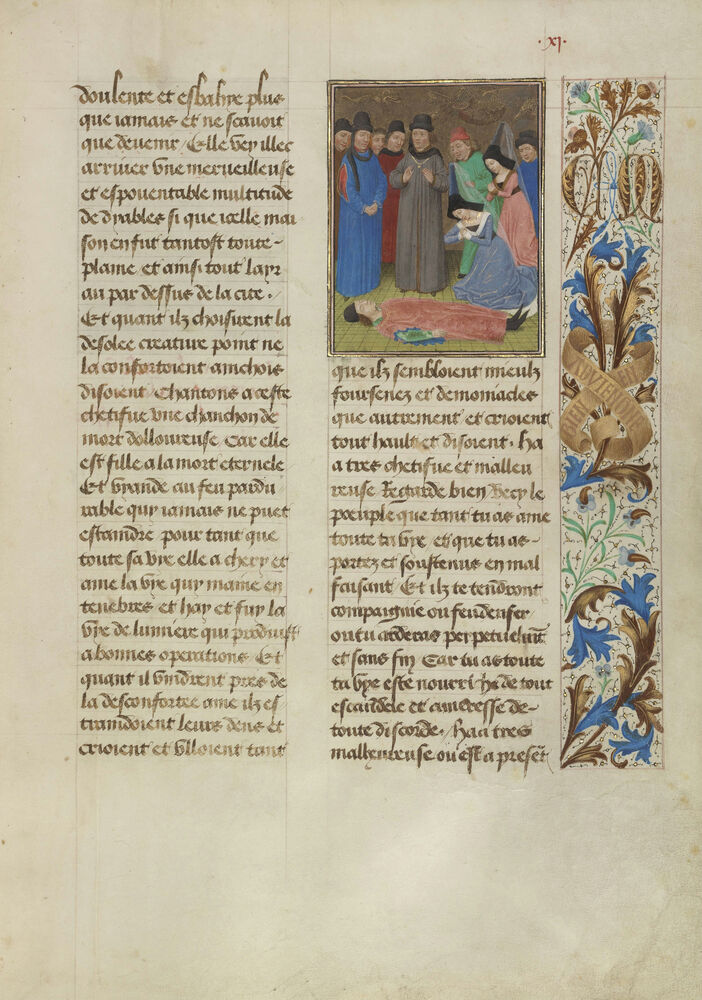 ·xj·
doulente et esbahye plus
que iamais et ne scauoit
que deuenir / Elle vey illec
arriuer vne merueilleuse
et espouentable multitude
de dyables si que icelle mai
son en fut tantost toute-
plaine et ainsi tout layr
au par dessus de la cite .
Et quant ilz choisirent la
desolee creature point ne
la confortoient ainchois
disoient Chantons a ceste
chetifue vne chanchon de
mort dolloureuse Car elle
est fille a la mort eternele
Et viande au feu pardu
rable quy iamais ne puet
estaindre pour tant que
toute sa vye elle a chery et
ame la vye quy maine en
tenebres et hay et fuy la
vye de lumiere qui produist
a bonnes operations Et
quant il vindrent pres de
la desconfortee ame ilz es-
traindoient leurs dens et
crioient et vlloient tant
que ilz sembloient mieulz
foursenez et demoniacles
que autrement et crioient
tout hault et disoient . Ha
a tres chetifue et malleu
reuse Regarde bien vecy le
poeuple que tant tu as ame
toute ta vye et que tu as-
portez et soustenus en mal
faisant Et ilz te tendront
compaignie ou feu denfer
ou tu arderas perpetuelmt
et sans fin Car tu as toute
ta vye este nourri hs de tout
escandele et ameresse de-
toute discorde . Haa tres
malheureuse ou est a presēt